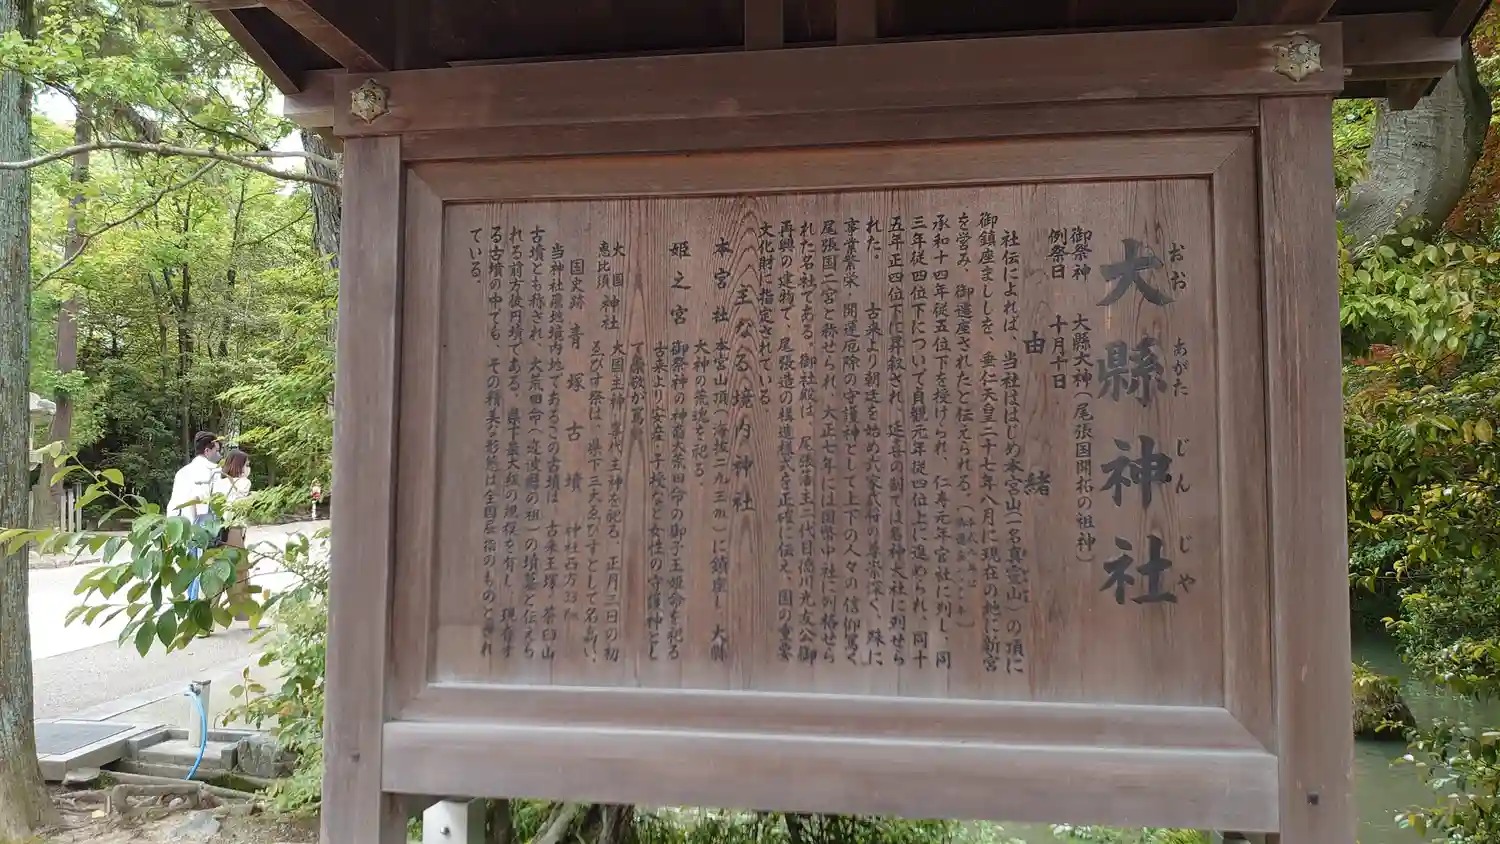 大縣神社
おお あがた じんじゃ
御祭神 大縣大神(尾張国開拓の祖神)
例祭日 十月十日
由緒
社伝によれば、当社ははじめ本宮山(一名真霊山)の頂に
御鎮座ましましを、垂仁天皇二十七年八月に現在の地に新宮
を営み、御遷座されたと伝えられる。
承和十四年従五位下を授けられ、仁寿元年官社に列し、同
三年従四位下について貞観元年従四位上に進められ、同十
五年正四位下に昇叙され、延喜の制では名神大社に列せら
れた。 古来より朝廷を始め六家武将の尊崇深く、殊に
事業繁栄・開運厄除の守護神として上下の人々の信仰篤く
尾張国二宮と称せられ、大正七年には国幣中社に列格せら
れた名社である。御社殿は、尾張藩主二代目徳川光友公御
再興の建物で、尾張造の様造様式を正確に伝え、国の重要
文化財に指定されている。
主なる境内神社
本宮社 本宮山頂(海抜二九三m)に鎮座し、大縣
大神の荒魂を祀る。
姫之宮 御祭神の神裔大荒田命の御子玉姫命を祀る
古来より安産・子授など女性の守護神とし
て崇敬が篤い
大国恵比須神社 大国主神・事代主神を祀る。正月三日の初
ゑびす祭は、県下三大ゑびすとして名高い、
国史跡 青塚古墳 神社西方
当神社飛地境内地であるこの古墳は、古来王塚・茶臼山
古墳とも称され、大荒田命(迩波縣の祖)の墳墓と伝えら
れる前方後円墳である。県下最大級の規模を有し、現存す
る古墳の中でも、その精美な形態は全国屈指のものとされ
ている。